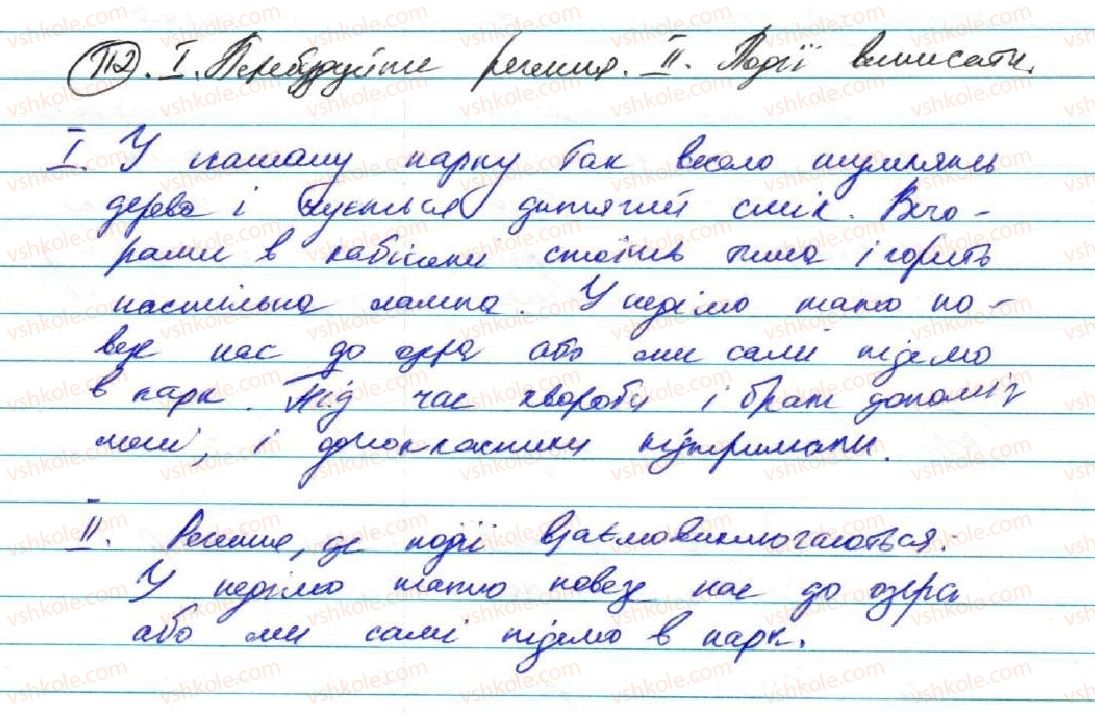 112. I. Перебудуйте речення. II. Події виписати.
I. У нашому парку так весело шумлять
дерева і чується дитячий сміх. Вечо-
рами в кабінеті стоїть тиша і горить
настільна лампа. У неділю тато по-
везе нас до озера або ми самі підемо
в парк. Під час хвороби і брат допоміг
мені, і однокласники підтримали.
II. Речення, де події взаємовиключаються:
У неділю тато повезе нас до озера
або ми самі підемо в парк.
vshkole.com